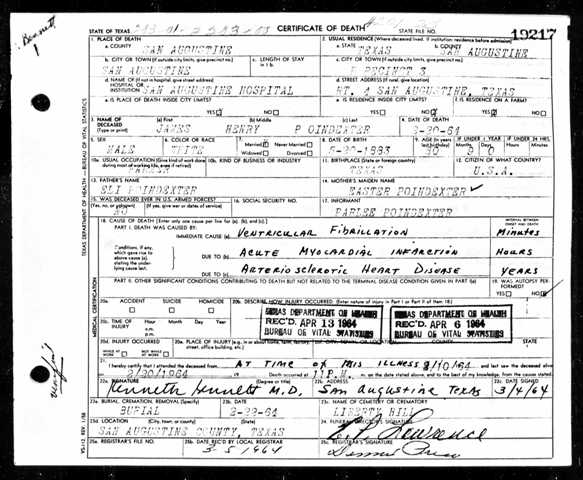 STATE OF TEXAS
CERTIFICATE OF DEATH
STATE FILE NO.
19217
1. PLACE OF DEATH
a. COUNTY
SAN AUGUSTINE
2. USUAL RESIDENCE (Where deceased lived. If institution: residence before admission)
a. STATE TEXAS b. COUNTY SAN AUGUSTINE
b. CITY OR TOWN (If outside city limits, give precinct no.) c. LENGTH OF STAY in 1 b.
SAN AUGUSTINE
c. CITY OR TOWN (If outside city limits, give precinct no.)
PRECINCT 3
d. NAME OF (If not in hospital, give street address) HOSPITAL OR INSTITUTION SAN AUGUSTINE HOSPITAL
d. STREET ADDRESS (If rural, give location)
RT. 4 SAN AUGUSTINE, TEXAS
e. IS PLACE OF DEATH INSIDE CITY LIMITS? YES NO
e. IS RESIDENCE INSIDE CITY LIMITS? YES NO
f. IS RESIDENCE ON A FARM? YES NO
3. NAME OF DECEASED (Type or print) (a) First (b) Middle (c) Last
JAMES HENRY POINDEXTER
4. DATE OF DEATH
5. SEX 6. COLOR OR RACE 7. Married Never Married Widowed Divorced
MALE WHITE
8. DATE OF BIRTH
1883
9. AGE (In years last birthday) IF UNDER 1 YEAR Months Days IF UNDER 24 HRS. Hours Min.
80
10a. USUAL OCCUPATION (Give kind of work done during most of working life, even if retired)
FARMER
10b. KIND OF BUSINESS OR INDUSTRY
11. BIRTHPLACE (State or foreign country)
TEXAS
12. CITIZEN OF WHAT COUNTRY?
U.S.A.
13. FATHER'S NAME
ELI POINDEXTER
14. MOTHER'S MAIDEN NAME
EASTER POINDEXTER
15. WAS DECEASED EVER IN U.S. ARMED FORCES? (Yes, no, or unknown) (If yes, give war or dates of service)
NO
16. SOCIAL SECURITY NO.
17. INFORMANT
PARLEE POINDEXTER
18. CAUSE OF DEATH [Enter only one cause per line for (a), (b), and (c).]
INTERVAL BETWEEN ONSET AND DEATH
PART I. DEATH WAS CAUSED BY:
IMMEDIATE CAUSE (a) VENTRICULAR FIBRILLATION Minutes
Conditions, if any, which gave rise to above cause (a), stating the underlying cause last.
DUE TO (b) ACUTE MYOCARDIAL INFARCTION HOURS
DUE TO (c) ARTERIOSCLEROTIC HEART DISEASE YEARS
PART II. OTHER SIGNIFICANT CONDITIONS CONTRIBUTING TO DEATH BUT NOT RELATED TO THE TERMINAL DISEASE CONDITION GIVEN IN PART I(a)
19. WAS AUTOPSY PERFORMED? YES NO
20a. ACCIDENT SUICIDE HOMICIDE
20b. DESCRIBE HOW INJURY OCCURRED. (Enter nature of injury in Part I or Part II of item 18.)
20c. TIME OF INJURY Hour Month Day Year a.m. p.m.
TEXAS DEPARTMENT OF HEALTH
REC'D. APR 13 1964
BUREAU OF VITAL STATISTICS
TEXAS DEPARTMENT OF HEALTH
REC'D. APR 6 1964
BUREAU OF VITAL STATISTICS
20d. INJURY OCCURRED
20e. PLACE OF INJURY (e.g., in or about home, farm, factory, street, office building, etc.)
20f. CITY, TOWN, OR LOCATION COUNTY STATE
21. I hereby certify that I attended the deceased from AT TIME OF HIS ILLNESS and last saw the deceased alive
Death occurred at 11 P.M. m. on the date stated above, and to the best of my knowledge, from the causes stated.
22a. SIGNATURE (Degree or title) 22b. ADDRESS 22c. DATE SIGNED
Kenneth Bennett M.D. San Augustine Texas 3/4/64
23a. BURIAL, CREMATION, REMOVAL (Specify) 23b. DATE 23c. NAME OF CEMETERY OR CREMATORY
BURIAL LIBERTY HILL
23d. LOCATION (City, town, or county) (State)
SAN AUGUSTINE COUNTY, TEXAS
24. FUNERAL DIRECTOR'S SIGNATURE
25a. REGISTRAR'S FILE NO. 25b. DATE REC'D BY LOCAL REGISTRAR 25c. REGISTRAR'S SIGNATURE
3-5 1964
TEXAS DEPARTMENT OF HEALTH — BUREAU OF VITAL STATISTICS
MEDICAL CERTIFICATION